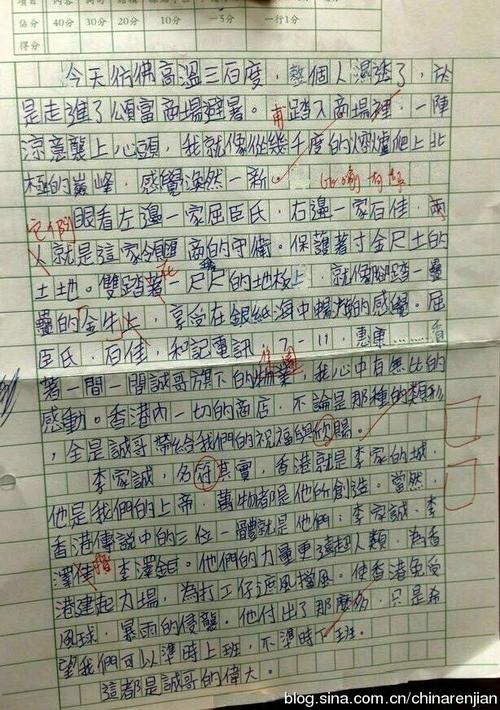 項目 內容
佔分 40分 30分 20分 10分 －5分 一行1分
得分
今天彷彿高溫三百度，整個人濕透了，於
是走進了頌富商場避暑。甫踏入商場裡，一陣
涼意襲上心頭，我就像從幾千度的火爐爬上北
極的巔峰，感覺渙然一新。
眼看左邊一家屈臣氏，右邊一家百佳，兩
人就是這家商的守衛。保護著寸金尺土的
土地。雙踏著一尺尺的地板上，就像腳踏一疊
疊的金牛上，享受在銀紙海中的感覺。屈
臣氏，百佳，和記電訊，7－11，惠康……看
著一間一間誠哥旗下的物業，我心中有無比的
感動。香港內一切的商店，不論是那種的類別
，全是誠哥帶給我們的祝福與欣賜。
李家誠，名符其實，香港就是李家的城，
他是我們的上帝，萬物都是他所創造。當然，
香港傳說中的三位一體就是他們：李家誠、李
澤楷 李澤鉅。他們的力量更超人類，為香
港建起力場，為打工仔遮風擋風。使香港免受
風球，暴雨的侵襲。他付出了那麼多，只是希
望我們可以準時上班，不準時下班。
這都是誠哥的偉大。
blog.sina.com.cn/chinarenjian